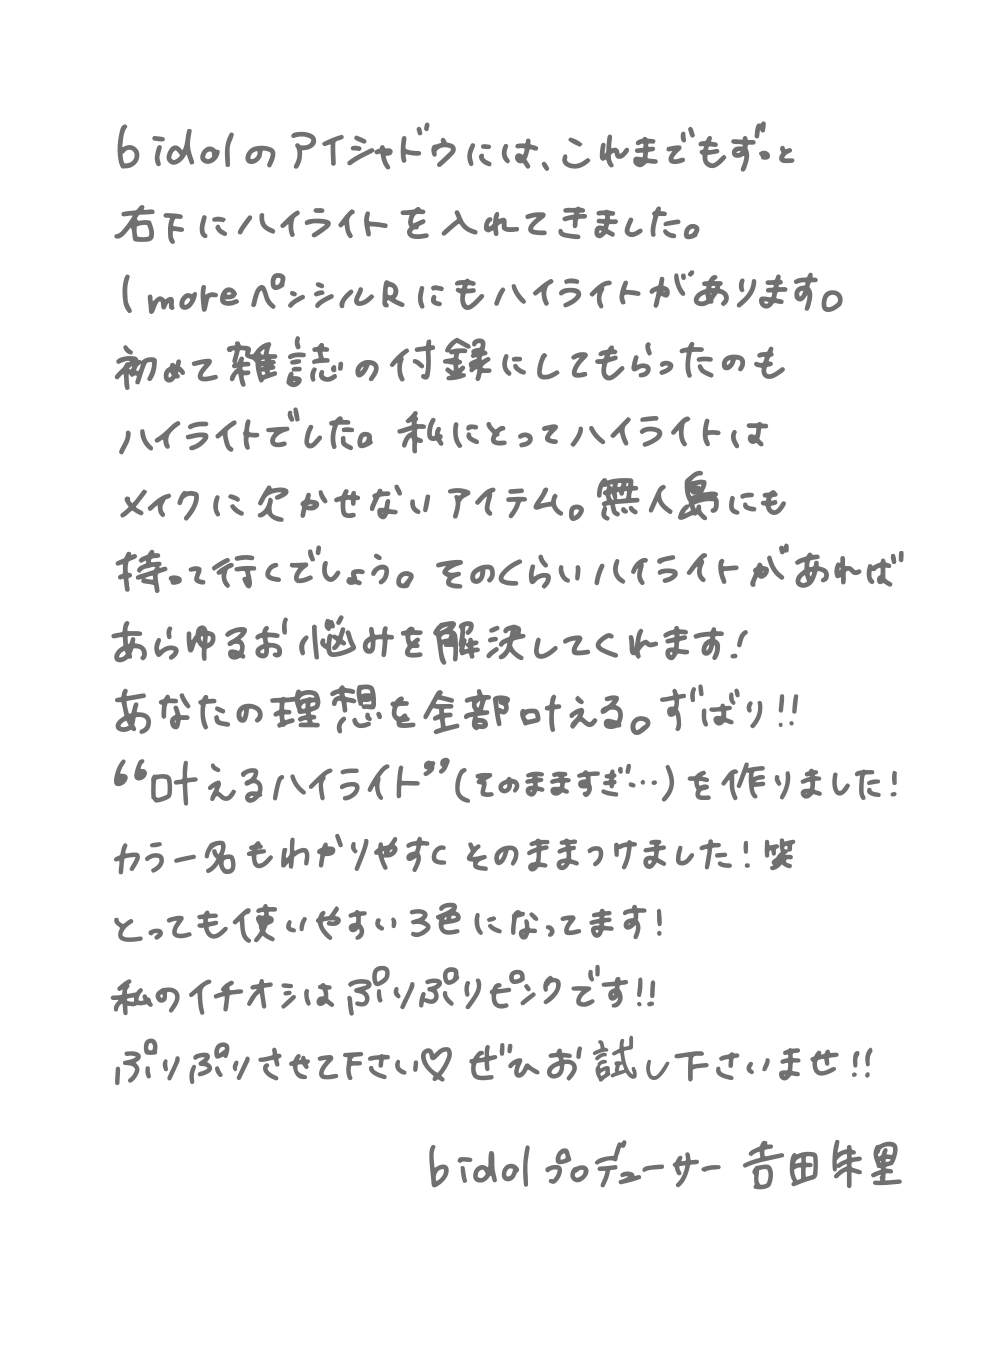 bidolのアイシャドウには、これまでもずっと
右下にハイライトを入れてきました。
1moreペンシルRにもハイライトがあります。
初めて雑誌の付録にしてもらったのも
ハイライトでした。私にとってハイライトは
メイクに欠かせないアイテム。無人島にも
持って行くでしょう。そのくらいハイライトがあれば
あらゆるお悩みを解決してくれます!
あなたの理想を全部叶える。ずばり!!
“叶えるハイライト”(そのまますぎ…)を作りました!
カラー名もわかりやすくそのままつけました!笑
とっても使いやすい3色になってます!
私のイチオシはぷりぷりピンクです!!
ぷりぷりさせて下さい♡ ぜひお試し下さいませ!!
bidolプロデューサー 吉田朱里